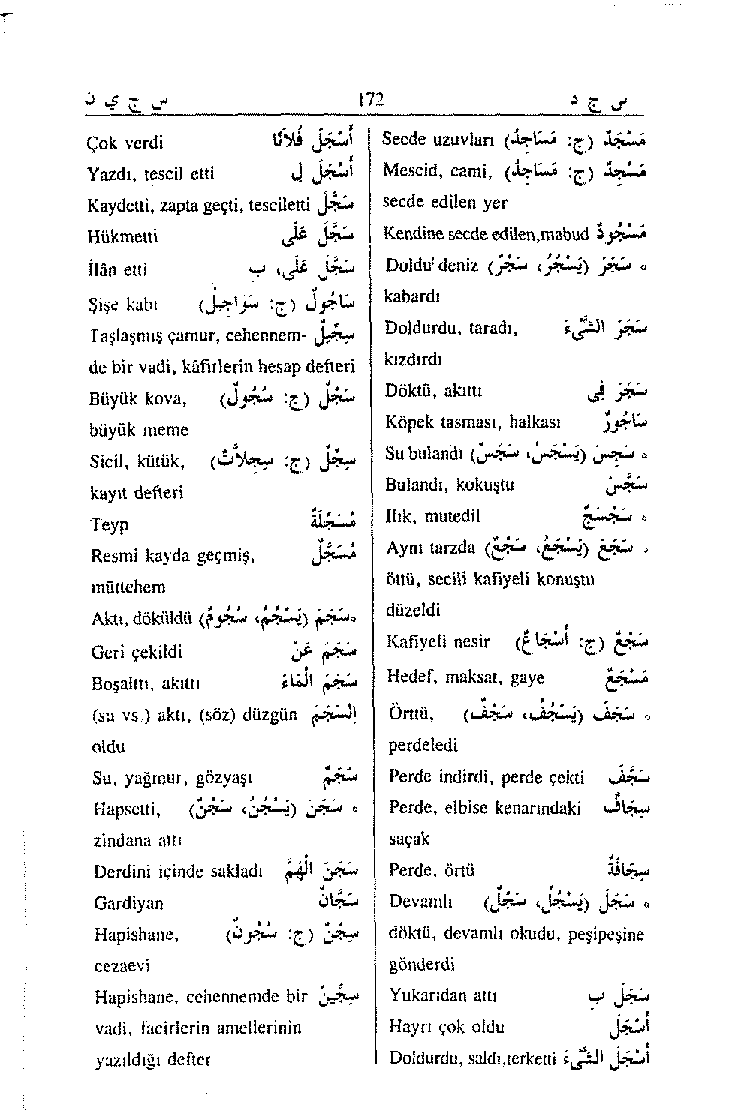 س ج ي ن 172 س ج د
Secde uzuvları مَسْجَدٌ (ج: مَسَاجِدُ)
Mescid, cami, مَسْجِدٌ (ج: مَسَاجِدُ)
secde edilen yer
Kendine secde edilen,mabud مَسْجُودٌ
Doldu'deniz ٥ سَجَرَ (يَسْجُرُ، سَجْرٌ)
kabardı
Doldurdu, taradı, سَجَرَ الشَّيْءَ
kızdırdı
Döktü, akıttı سَجَرَ فِى
Köpek tasması, halkası سَاجُورٌ
Su bulandı ٥ سَجِسَ (يَسْجَسُ، سَجَسٌ)
Bulandı, kokuştu سَجَّسَ
Ilık, mutedil ٥ سَجْسَجٌ
Aynı tarzda ٥ سَجَعَ (يَسْجَعُ، سَجْعٌ)
öttü, secili kafiyeli konuştu
düzeldi
Kafiyeli nesir سَجْعٌ (ج: أَسْجَاعٌ)
Hedef, maksat, gaye مَسْجَعٌ
Örttü, ٥ سَجَفَ (يَسْجُفُ، سَجْفٌ)
perdeledi
Perde indirdi, perde çekti سَجَّفَ
Perde, elbise kenarındaki سِجَافٌ
saçak
Perde, örtü سِجَافَةٌ
Devamlı ٥ سَجَلَ (يَسْجُلُ، سَجْلٌ)
döktü, devamlı okudu, peşipeşine
gönderdi
Yukarıdan attı سَجَلَ ب
Hayrı çok oldu أَسْجَلَ
Doldurdu, saldı,terketti أَسْجَلَ الشَّيْءَ
Çok verdi أَسْجَلَ فُلاَنًا
Yazdı, tescil etti أَسْجَلَ لِ
Kaydetti, zapta geçti, tesciletti سَجَّلَ
Hükmetti سَجَّلَ عَلَى
İlân etti سَجَّلَ عَلَى، ب
Şişe kabı سَاجُولٌ (ج: سَوَاجِلُ)
Taşlaşmış çamur, cehennem- سِجِّيلٌ
de bir vadi, kâfirlerin hesap defteri
Büyük kova, سَجْلٌ (ج: سُجُولٌ)
büyük meme
Sicil, kütük, سِجِلٌّ (ج: سِجِلاَّتٌ)
kayıt defteri
Teyp مُسَجِّلَةٌ
Resmi kayda geçmiş, مُسَجَّلٌ
müttehem
Aktı, döküldü ٥ سَجَمَ (يَسْجُمُ، سُجُومٌ)
Geri çekildi سَجَمَ عَنْ
Boşalttı, akıttı سَجَمَ الْمَاءَ
(su vs.) aktı, (söz) düzgün اِنْسَجَمَ
oldu
Su, yağmur, gözyaşı سَجَمٌ
Hapsetti, ٥ سَجَنَ (يَسْجُنُ، سَجْنٌ)
zindana attı
Derdini içinde sakladı سَجَنَ الْهَمَّ
Gardiyan سَجَّانٌ
Hapishane, سِجْنٌ (ج: سُجُونٌ)
cezaevi
Hapishane, cehennemde bir سِجِّينٌ
vadi, facirlerin amellerinin
yazıldığı defter